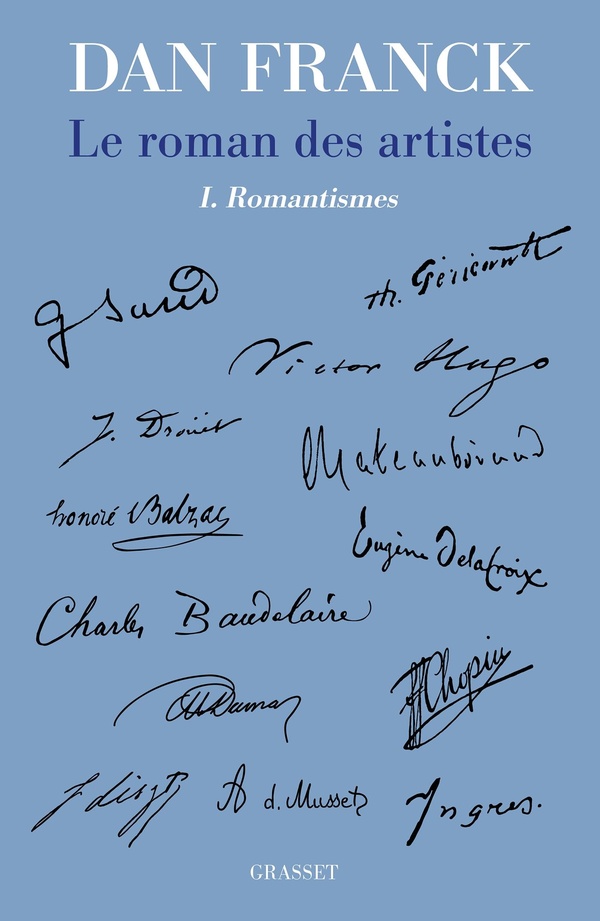 DAN FRANCK
Le roman des artistes
I. Romantismes
G Sand
th. Géricault
Victor Hugo
J. Drouet
Chateaubriand
honoré Balzac
Eugène Delacroix
Charles Baudelaire
Chopin
Dumas
f liszt
A d. Musset
Ingres.
GRASSET